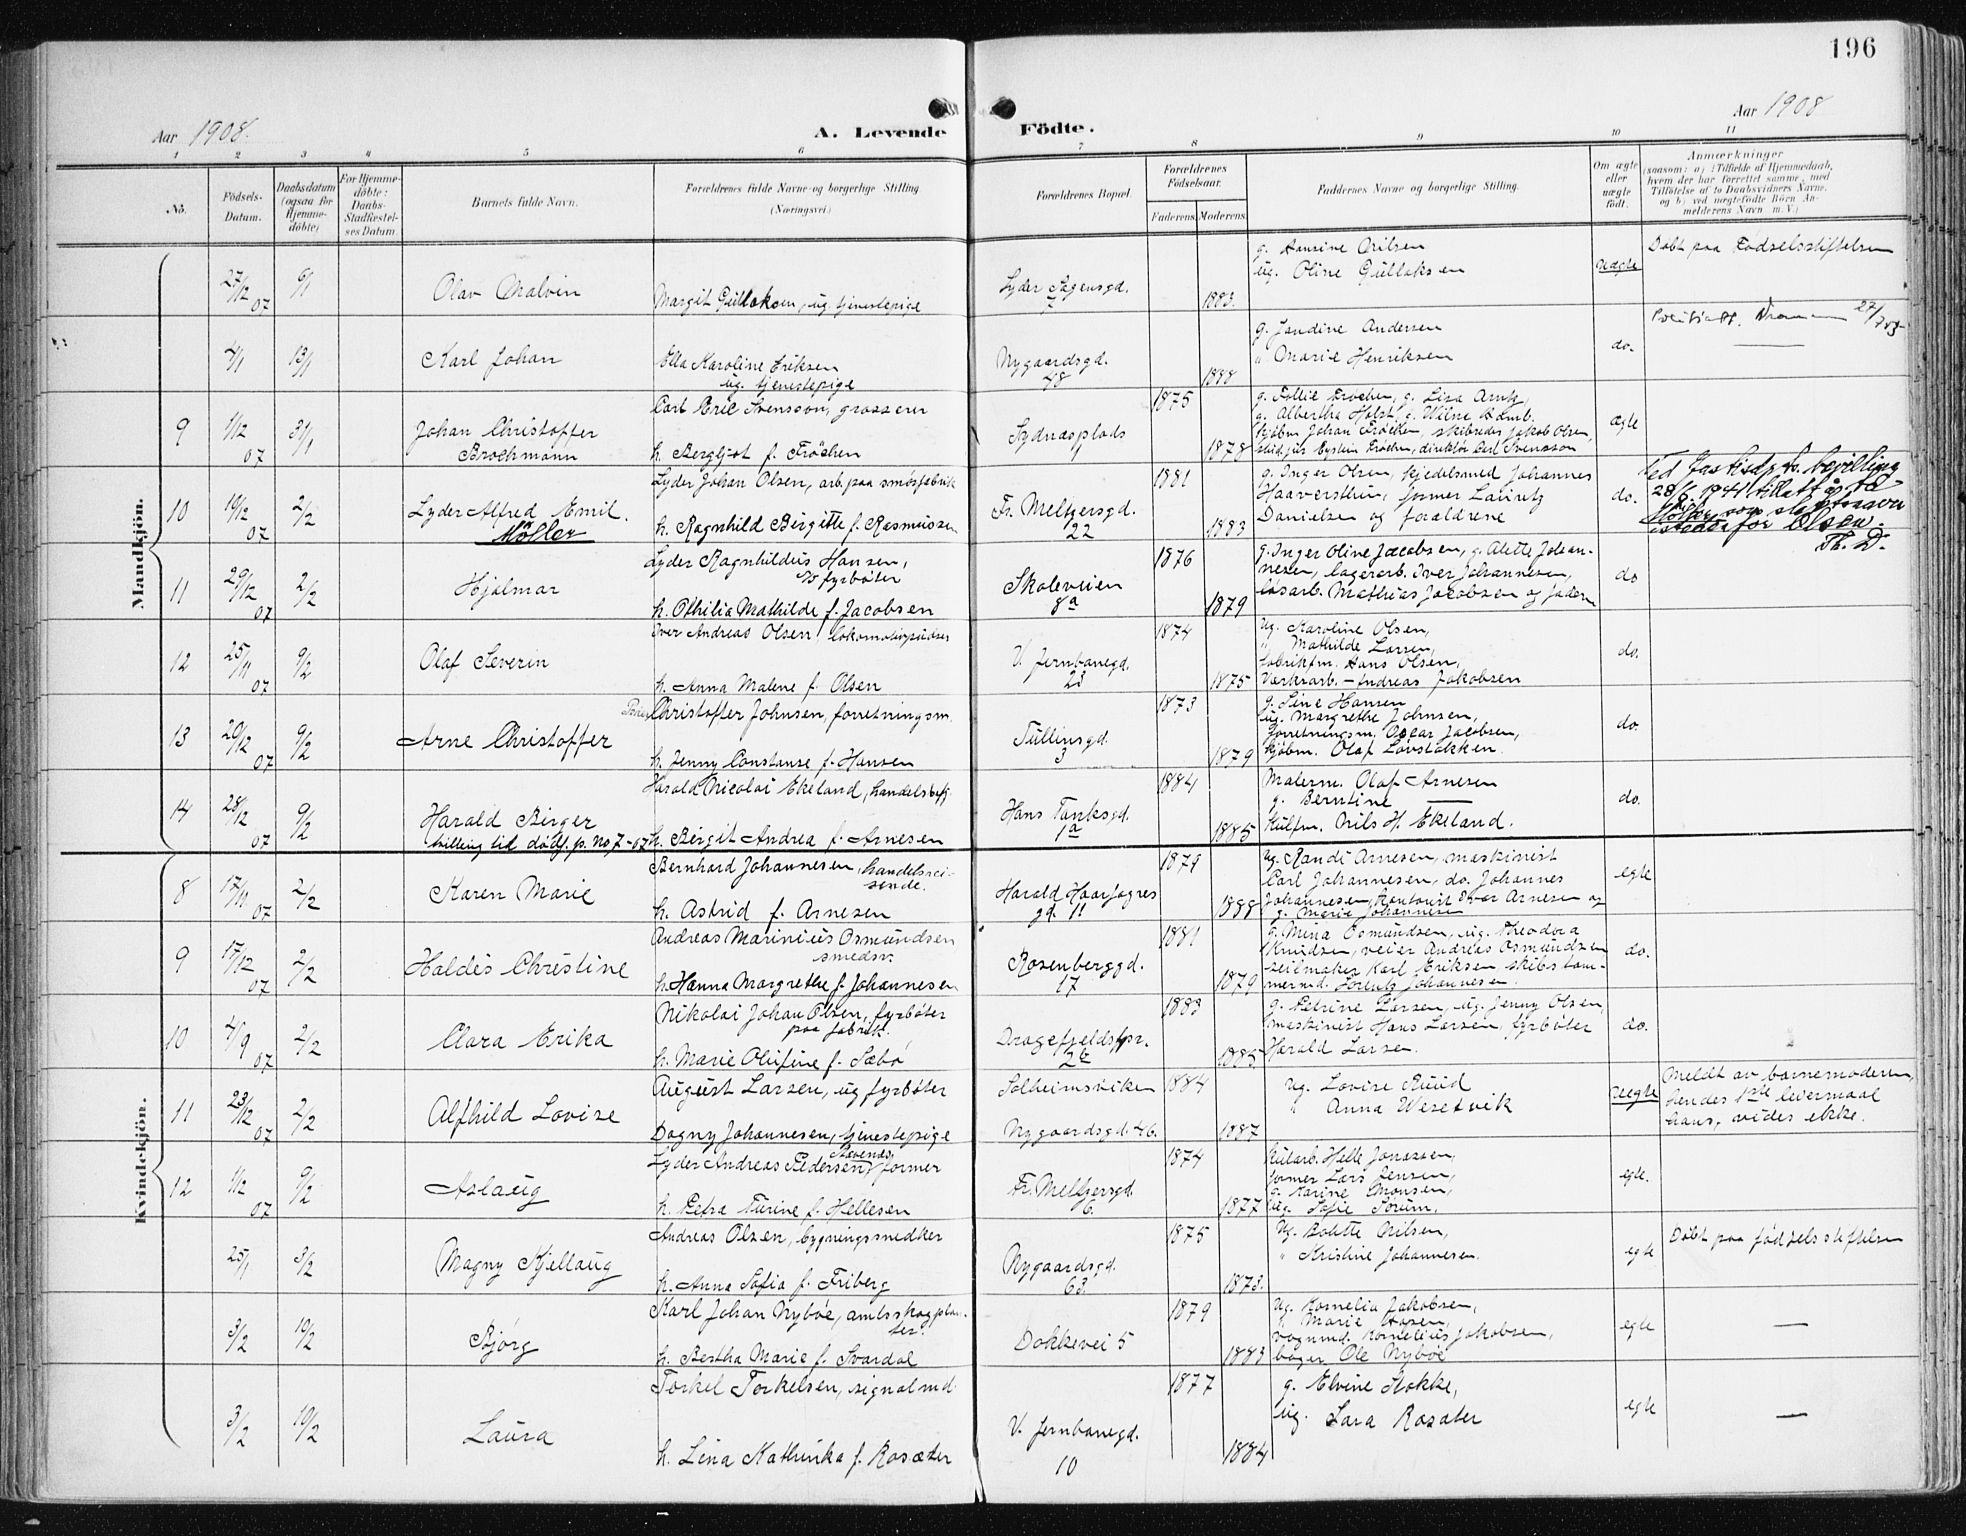 196
Aar 1908.
A. Levende Födte.
Aar 1908
1 2 3 4 5 6 7 8 9 10 11
No.
Födsels-Datum.
Daabsdatum (ogsaa for Hjemme-döbte)
For Hjemme-döbte: Daabs-Stadfæstel-ses Datum.
Barnets fulde Navn.
Forældrenes fulde Navne og borgerlige Stilling. (Næringsvei.)
Forældrenes Bopæl.
Forældrenes Födselsaar.
Faderens. Moderens.
Faddernes Navne og borgerlige Stilling.
Om ægte eller uægte födt.
Anmærkninger
(saasom: a) i Tilfælde af Hjemmedaab, hvem der har forrettet samme, med Tilföielse af to Daabsvidners Navne, og b) ved uægtefödte Börn An-melderens Navn m. V.)
Mandkjön.
27/12 07 6/1 Olav Malvin
Margit Gullaksen, ug. tjenestepige
7 1883.
g. Hansine Nilsen
ug. Oline Gullaksen
uægte
Døbt paa Fødselsstiftelsen
4/1 13/1 Karl Johan
Ella Karoline Eriksen
ug. tjenestepige
Nygaardsgd. 48
g. Jandine Andersen
" Marie Henriksen
do.
9 1/12 07 31/1 Johan Christoffer Brochmann
Carl Eric Svensson, grosserer
h. Bergljot f. Fröchen
Sydnæsplads 1
1875 1878
g. Albertha Holst,
ægte
10 19/12 07 2/2 Lyder Alfred Emil.
Möller
Lyder Johan Olsen, arb. paa smørfabrik
h. Ragnhild Birgitte f. Rasmussen
Fr. Meltzersgd. 22
1881 1883
g. Inger Olsen, kjedelsmed Johannes
Danielsen og forældrene
do.
28/6 1941 tillatt å ta
Möller som slektsnavn
istedenfor Olsen.
Th. D.
11 29/12 07 2/2 Hjalmar
Lyder Ragnhildus Hansen,
fyrbøter
h. Othilia Mathilde f. Jacobsen
Skoleveien 8a
1876 1879
g. Inger Oline Jacobsen, g. Alette Johan-
nesen, lagerarb. Iver Johannesen,
løsarb. Mathias Jacobsen og faderen
do
12 25/11 07 9/2 Olaf Severin
Iver Andreas Olsen, lokomotivpudser
h. Anna Malene f. Olsen
V. Jernbanegd. 23
1874 1875
ug. Karoline Olsen,
" Mathilde Larsen,
fabrikfm. Hans Olsen,
Værksarb. Andreas Jakobsen
do.
13 20/12 07 9/2 Arne Christoffer
Christoffer Johnsen, forretningsm.
h. Jenny Constanse f. Hansen
Tullinsgd. 3
1873 1879
g. Sine Hansen
ug. Margrethe Johnsen,
forretningsm. Oscar Jacobsen,
kjøbm. Olaf Løvstakken.
do.
14 28/12 07 9/2 Harald Birger
tvilling til dødf. p. No 7-07
Harald Nicolai Ekeland, handelsbetj.
h. Birgit Andrea f. Arnesen
Hans Tanksgd. 1a
1884 1885
Malerm. Olaf Arnesen
g. Berntine —
Kulfm. Nils H. Ekeland.
do.
Kvindekjön.
8 17/11 07 2/2 Karen Marie
Bernhard Johannesen, handelsrei-
sende.
h. Astrid f. Arnesen
Harald Haarfagres gd. 11
1879 1888
ug. Randi Arnesen, maskinist
Carl Johannesen, do. Johannes
Johannesen, Kontorist Iver Arnesen og
g. Marie Johannesen
egte
9 17/12 07 2/2 Haldis Christine
Andreas Marinius Osmundsen
smedsv.
h. Hanna Margrethe f. Johannesen
Rosenberggd. 17
1881 1879
g. Mina Osmundsen, ug. Theodora
Knudsen, veier Andreas Osmundsen
seilmaker Karl Eriksen, skibstøm-
mermd. Lorentz Johannesen.
do.
10 4/9 07 2/2 Clara Erika
Nikolai Johan Olsen, fyrbøter
paa fabrik.
h. Marie Olufine f. Sæbø
1883 1885
g. Petrine Larsen, ug. Jenny Olsen,
maskinist Hans Larsen, fyrbøter
Harald Larsen.
do.
11 23/12 07 2/2 Alfhild Lovise
August Larsen, ug fyrbøter
Dagny Johannesen, tjenestepige
Solheimsviken
Nygaardsgd. 46.
1884 1887
ug. Lovise Ruud
" Anna Wesetvik
uegte
Meldt av barnemoderen,
hendes 1ste leiermaal
hans, vides ikke.
12 1/12 07 9/2 Aslaug
Lyder Andreas Pedersen, former
h. Petra Turine f. Hellesen
Fr. Meltzersgd. 6
1874 1877
Kularb. Helle Jonassen,
former Lars Jensen,
g. Karine Monsen,
ug. Sofie Sørum,
egte.
25/1 3/2 Magny Kjellaug
Andreas Olsen, bygningssnedker
h. Anna Sofia f. Friberg
Nygaardsgd. 63
1875 1873.
ug. Bolette Nilsen,
" Kristine Johannesen.
egte
Døbt paa fødselsstiftelsen
3/2 10/2 Bjørg
Karl Johan Nybøe, amtsskogplan-
ter.
h. Bertha Marie f. Svardal
Dokkevei 5
1879 1883
ug. Kornelia Jakobsen,
vognmd. Kornelius Jakobsen,
bager Ole Nybøe
egte —
3/2 10/2 Laura
Torkel Torkelsen, signalmd.
h. Lina Kathinka f. Rosæter
V. Jernbanegd. 10
1877 1884
g. Elvine Stokke,
ug. Lara Rosæter
egte —